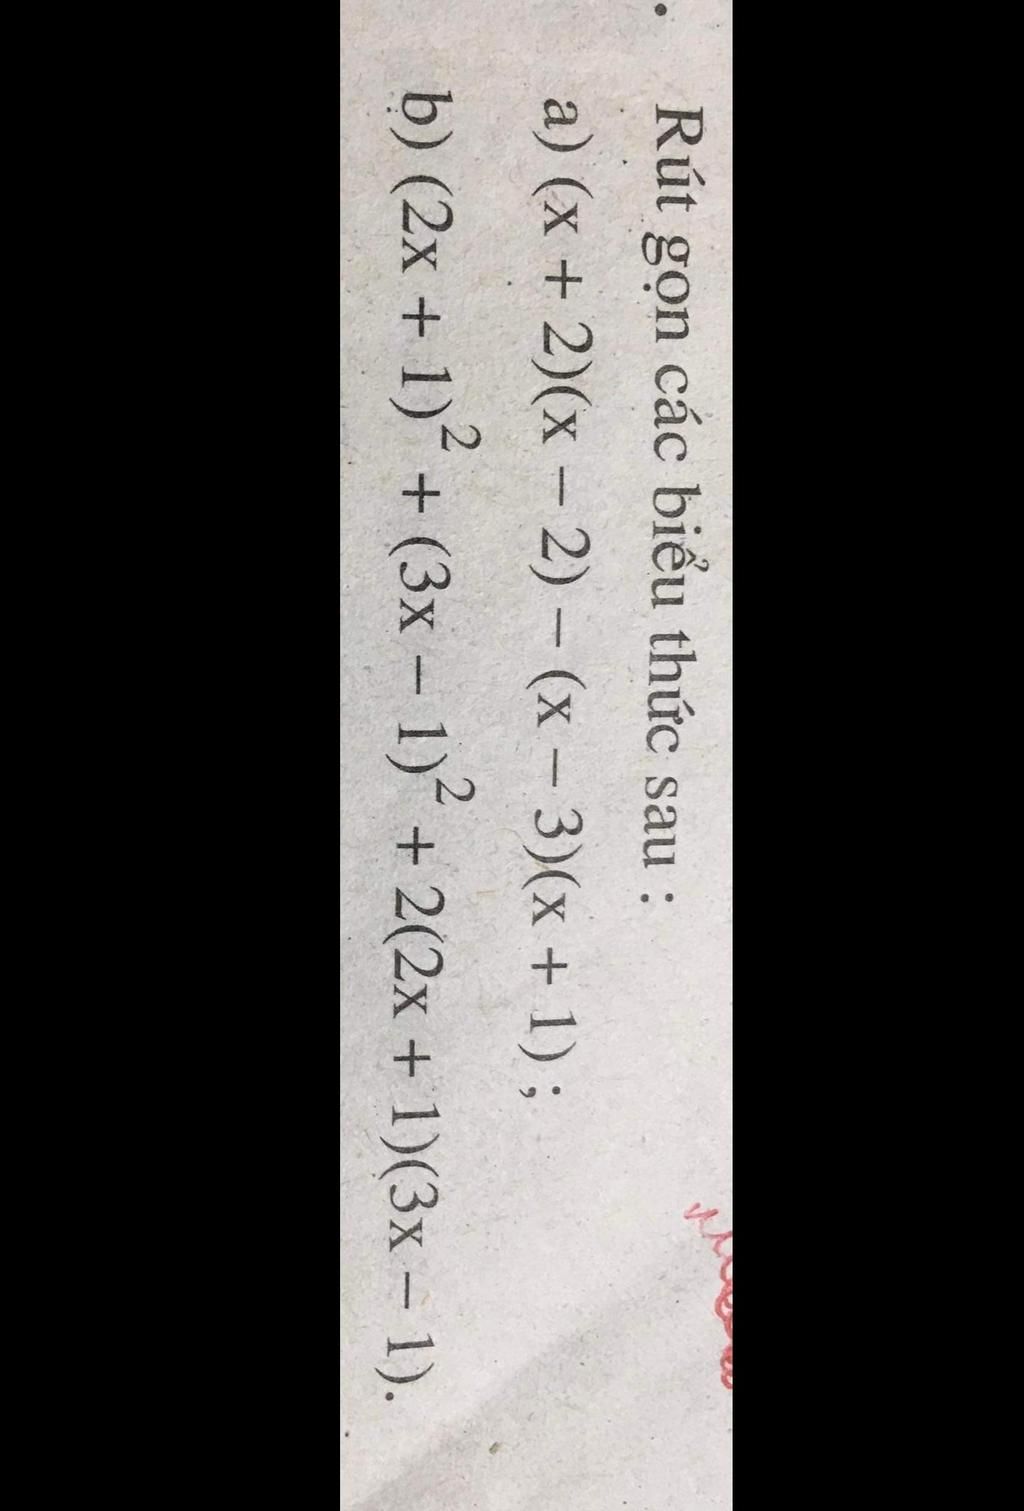 Rút gọn các biểu thức sau :
a) (x + 2)(x – 2) – (x – 3)(x + 1) ;
b) (2x + 1)² + (3x – 1)² + 2(2x + 1)(3x – 1).